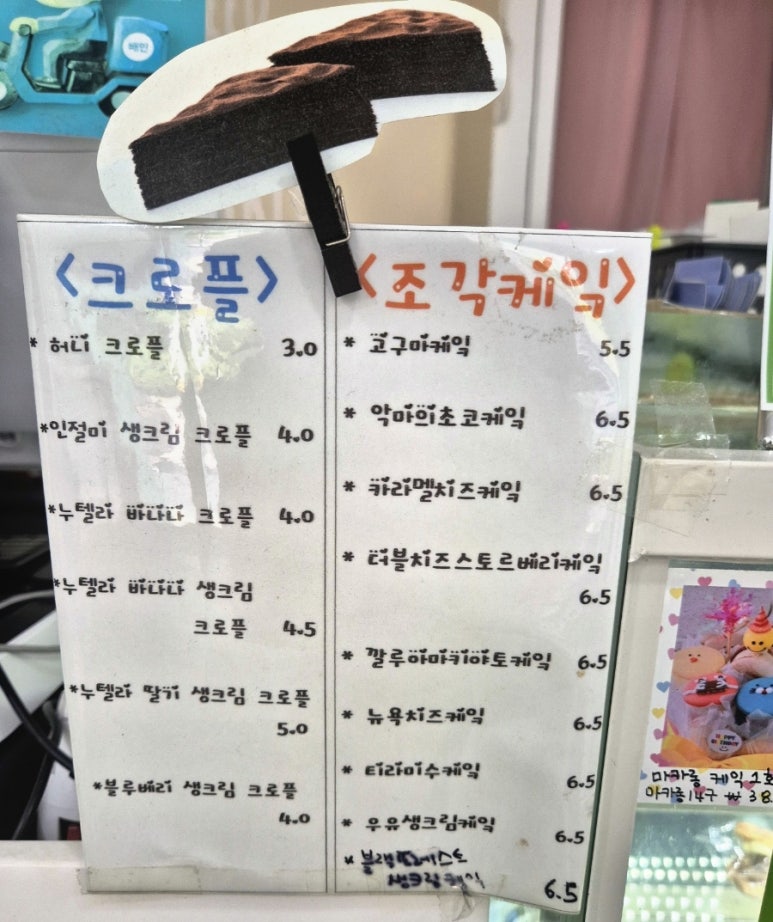 배민
<크로플>
* 허니 크로플 3.0
*인절미 생크림 크로플 4.0
*누텔라 바나나 크로플 4.0
*누텔라 바나나 생크림
크로플 4.5
*누텔라 딸기 생크림 크로플
5.0
*블루베리 생크림 크로플
4.0
<조각케익>
* 고구마케익 5.5
* 악마의초코케익 6.5
* 카라멜치즈케익 6.5
* 더블치즈스토르베리케익
6.5
* 깔루아마키야토케익 6.5
* 뉴욕치즈케익 6.5
* 티라미수케익 6.5
* 우유생크림케익 6.5
생크림케익 6.5
HAPPY
BIRTHDAY
마카롱 케익 1호
마카롱14구 ₩ 38